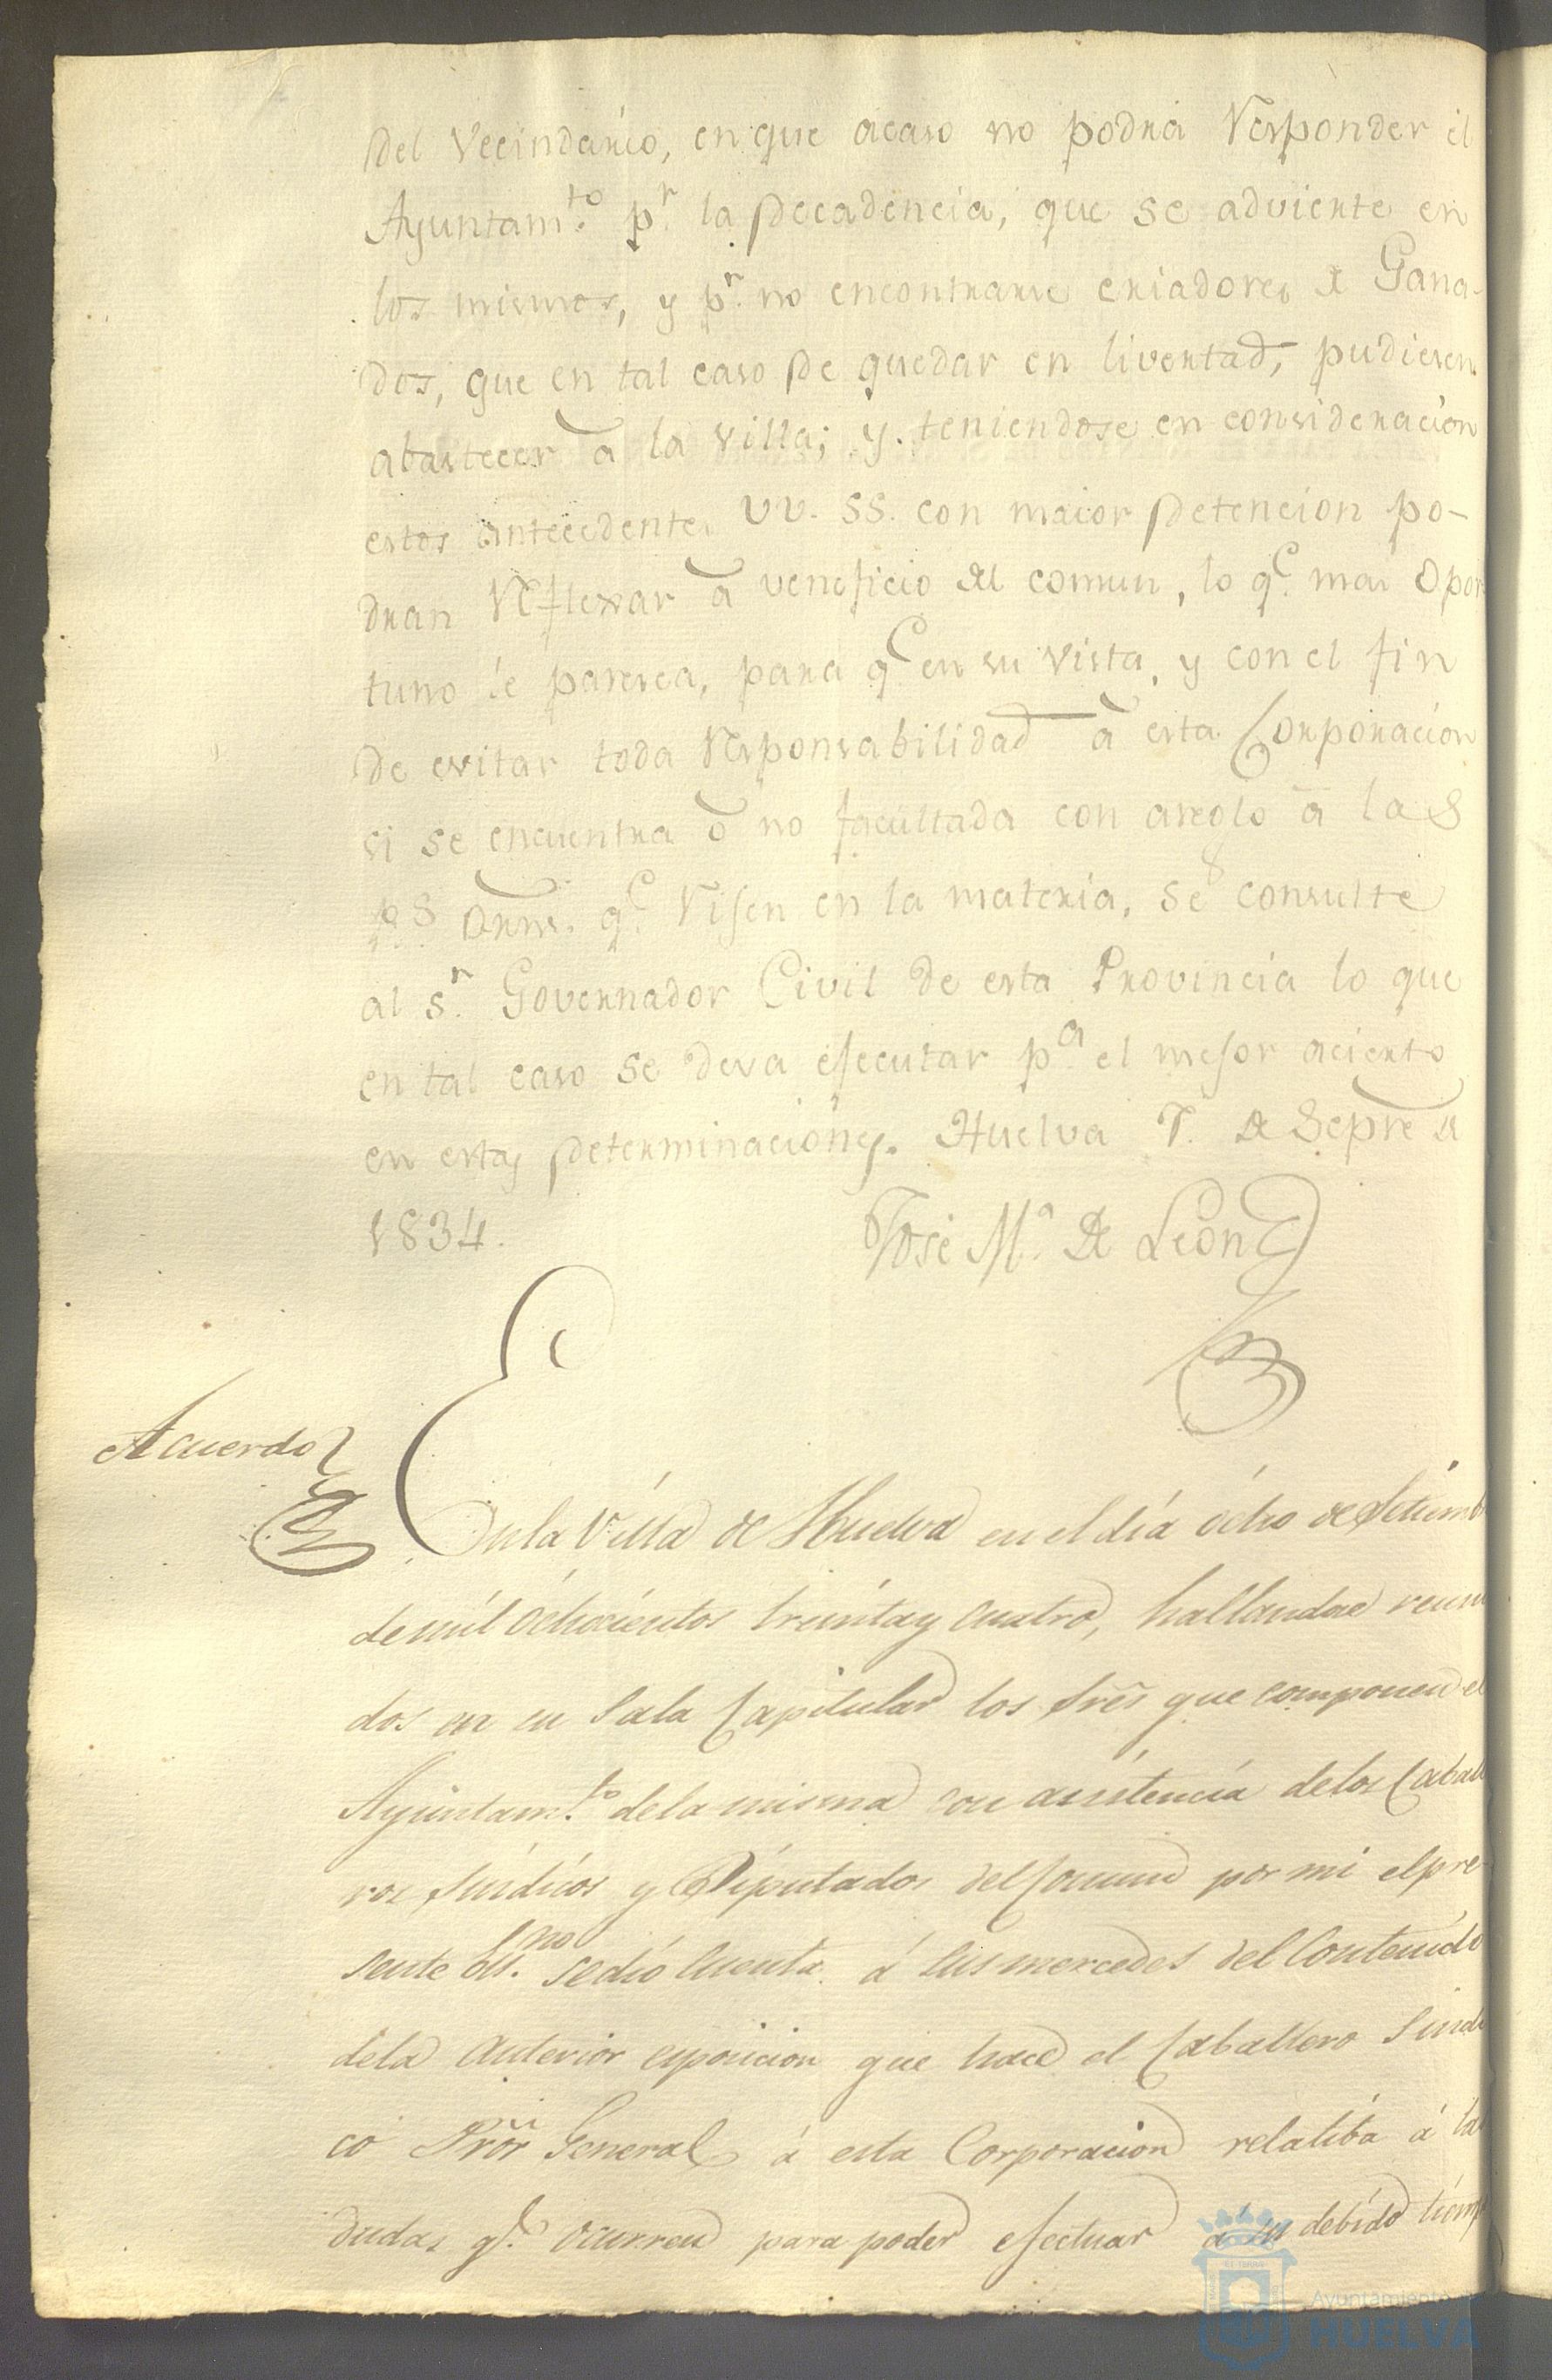 del Vecindario, en que acaso no podrá Responder el
Ayuntam.to p.r la decadencia, que se advierte en
los mismos, y p.r no encontrarse criadores de Gana-
dos, que en tal caso de quedar en livertad, pudiesen
abastecer á la villa; y teniendose en consideracion
estos antecedentes VV. SS. con maior detencion po-
dran Reflexar á veneficio del comun, lo q.e mas opor
tuno le paresca, para q.e en su vista, y con el fin
de evitar toda Responsabilidad á esta Corporacion
si se encuentra ó no facultada con areglo á las
Orns. q.e Rijen en la materia, se consulte
al s.r Governador Civil de esta Provincia lo que
en tal caso se deva ejecutar p.a el mejor acierto
en estas determinaciones. Huelva 7. de Sepre de
1834.
José M.a de Leon
Acuerdo
En la Villa de Huelva en el día ócho de Setiemb
de míl óchocientos treínta y cuatro, hallandose reuni
dos en su Sala Capitular los Sres que componen el
Ayuntam.to de la misma con asistencia de los Caball
ros Síndícos y Díputados del Comun por mi el pre-
sente Es.no se dió cuenta á sus mercedes del Contenido
de la anterior esposicion que hace el Caballero Sindi
co Prõr General á esta Corporacion relatiba á las
dudas q.e ocurren para poder efectuar á su debído tiemp
Ayuntamiento de
HUELVA